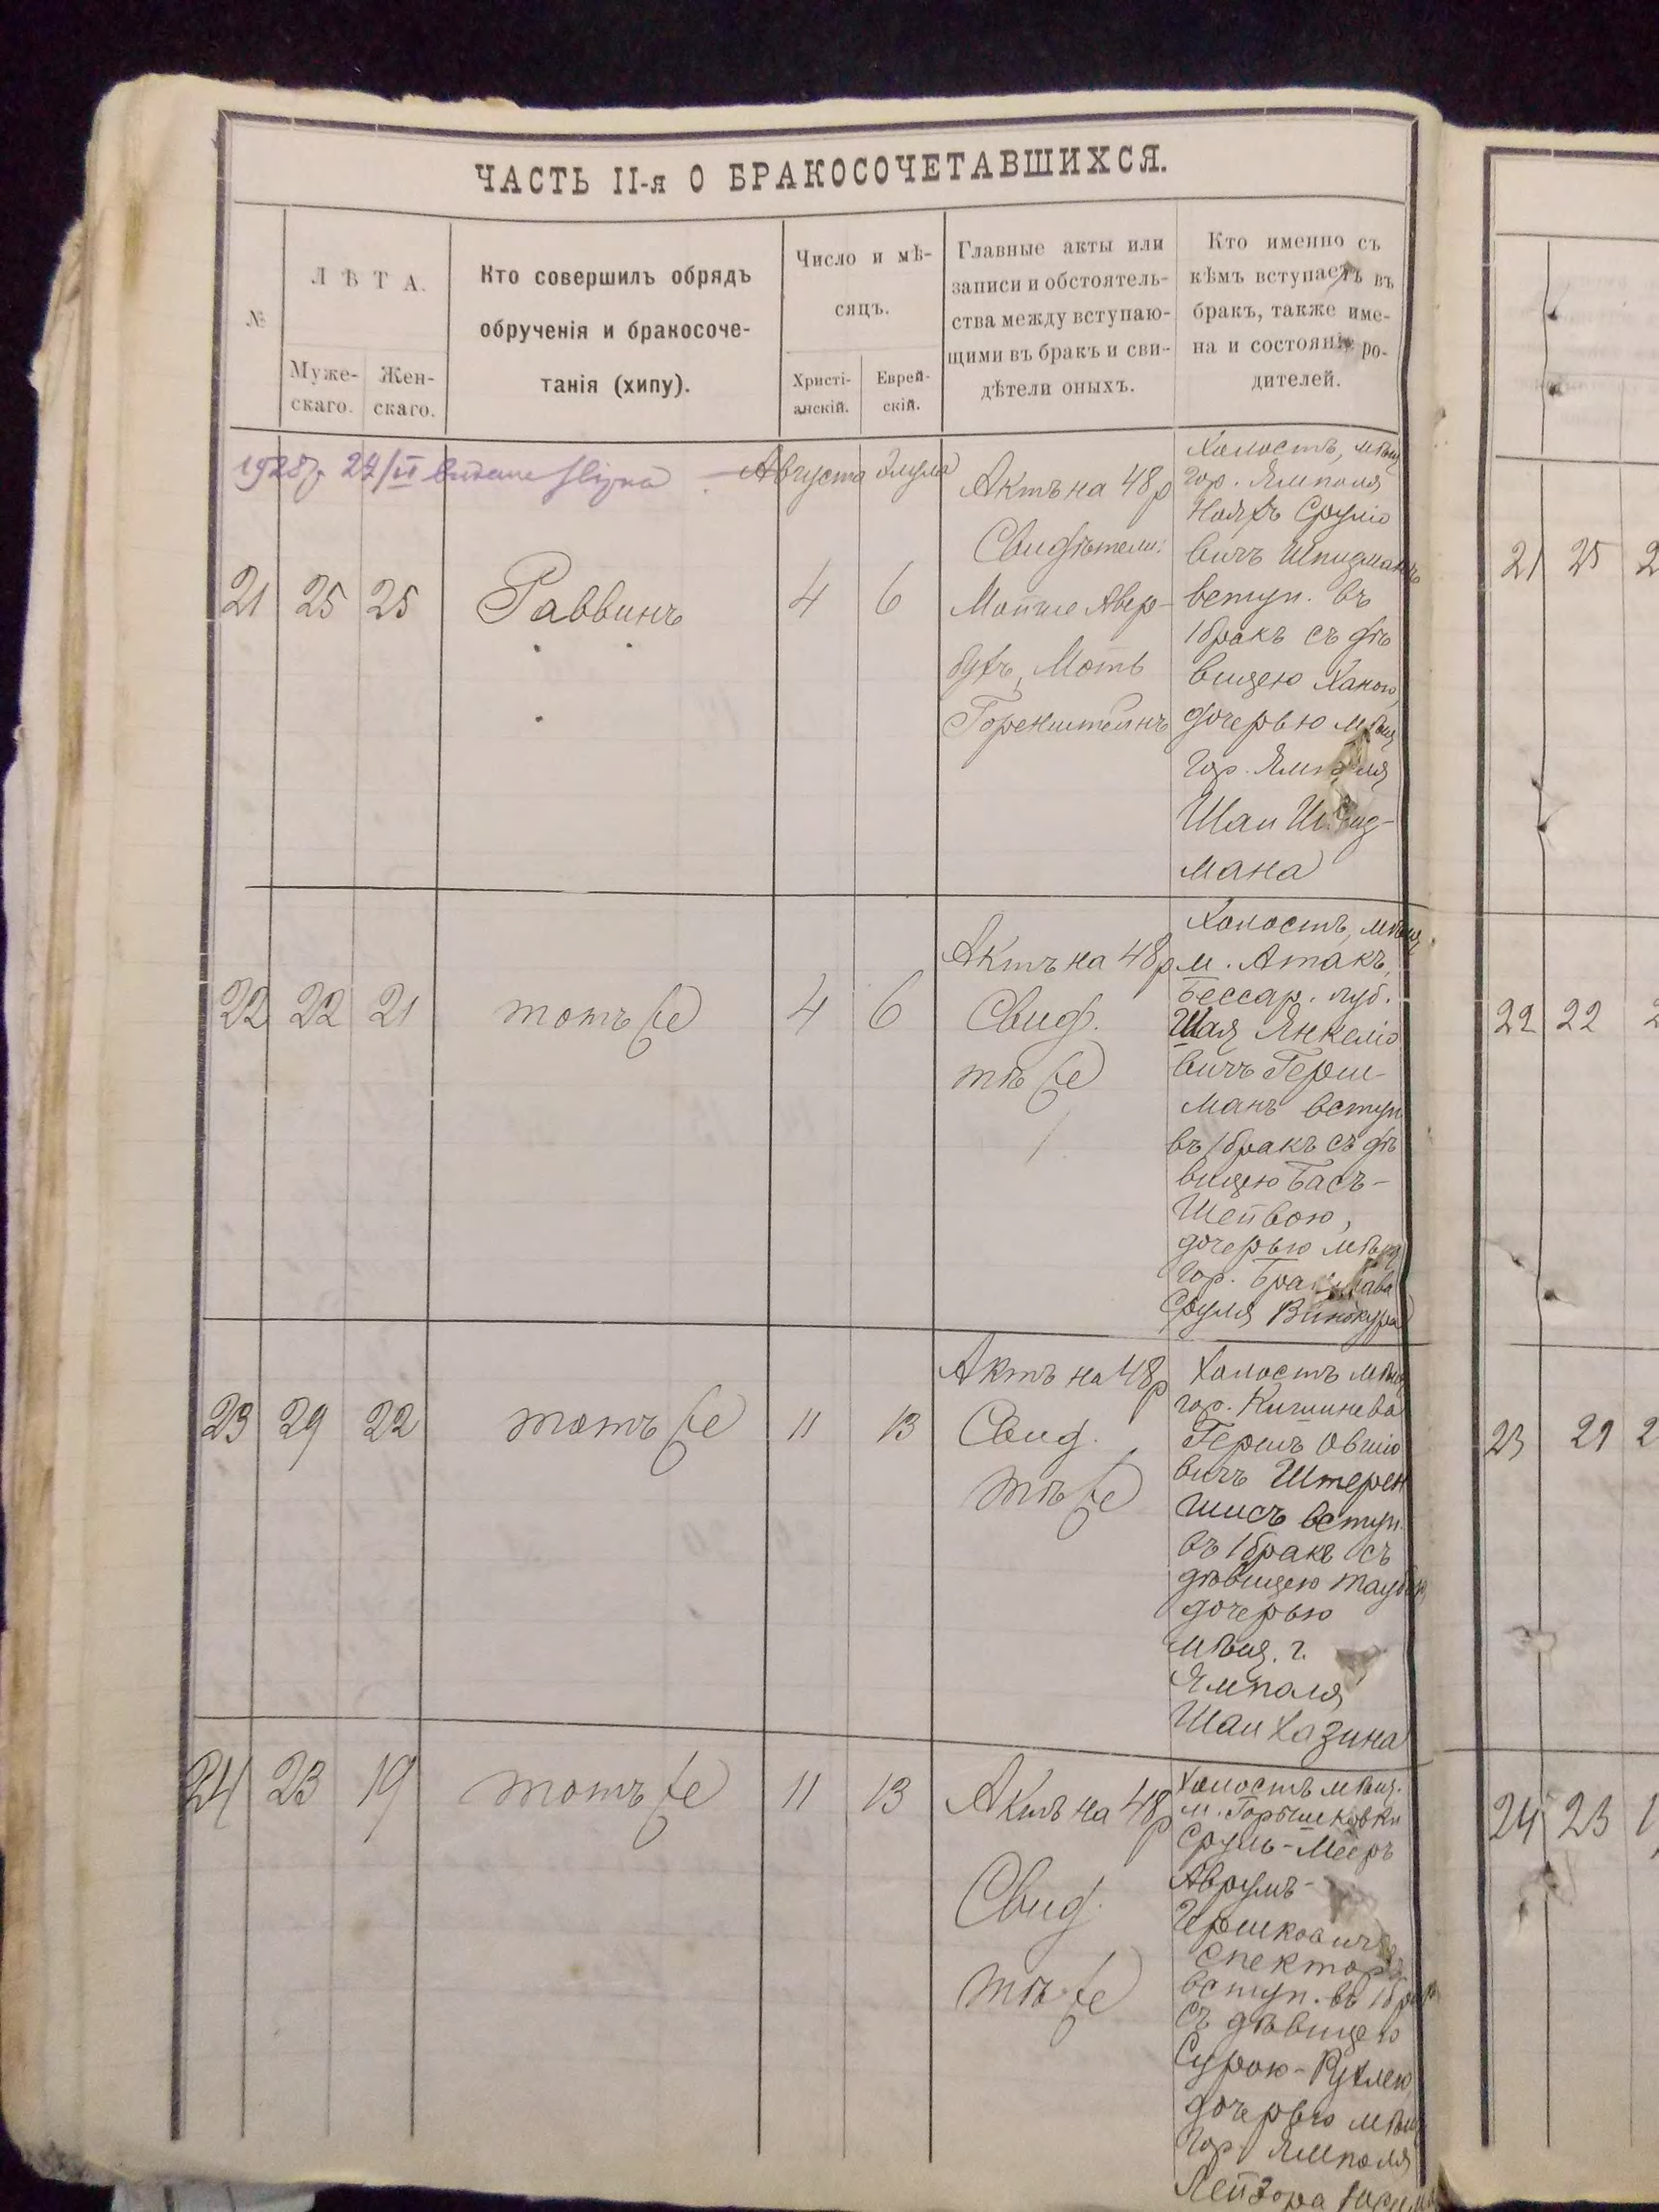 ЧАСТЬ II-я О БРАКОСОЧЕТАВШИХСЯ.
№
ЛѢТА.
Муже-
скаго.
Жен-
скаго.
Кто совершилъ обрядъ
обрученія и бракосоче-
танія (хипу).
Число и мѣ-
сяцъ.
Христі-
анскій.
Еврей-
скій.
Главные акты или
записи и обстоятель-
ства между вступаю-
щими въ бракъ и сви-
дѣтели оныхъ.
Кто именно съ
кѣмъ вступаетъ въ
бракъ, также име-
на и состояніе ро-
дителей.
1928 р. 24/II
Августа Элула
21 25 25 Раввинъ 4 6
Актъ на 48 р
Свидѣтели:
Мойше Авер-
бухъ, Моть
Горенштейнъ
Холостъ, мѣщ
гор. Ямполя
Нояхъ Срулiо
вичъ Шпизманъ
вступ. въ
1 бракъ съ дѣ
вицею Ханою,
дочерью мѣщ
гор. Ямполя
Шаи Шпиз-
мана
22 22 21 тотъ же 4 6
Актъ на 48 р
Свид.
тѣ же
Холостъ, мѣщ.
м. Атакъ,
Бессар. губ.
Шая Янкеліо
вичъ Герш-
манъ вступ
въ 1 бракъ съ дѣ
вицею Бась-
Шейвою,
дочерью мѣщ
гор. Брацлава
Сруля Винокура
23 29 22 тотъ же 11 13
Актъ на 48 р
Свид.
тѣ же
Холостъ мѣщ
гор. Кишинева
Гершъ Овшіо
вичъ Штерен
шисъ вступ.
въ 1 бракъ съ
дѣвицею
дочерью
мѣщ. г.
Ямполя
Шаи Хазина
24 23 19 тотъ же 11 13
Актъ на 48 р
Свид.
тѣ же
Холостъ мѣщ.
м. Горышковки
Сруль-Мееръ
Аврумъ-
Гершковичъ
Спекторъ
вступ. въ 1 бракъ
съ дѣвицею
Сурою-Рухлею,
дочерью мѣщ
гор. Ямполя
Лейзора
21 25 2
22 22 2
23 29 2
24 23 1